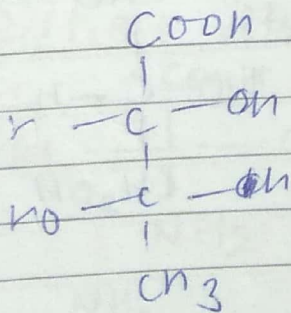 COOH
|
H — C — OH
|
HO — C — H
|
CH3